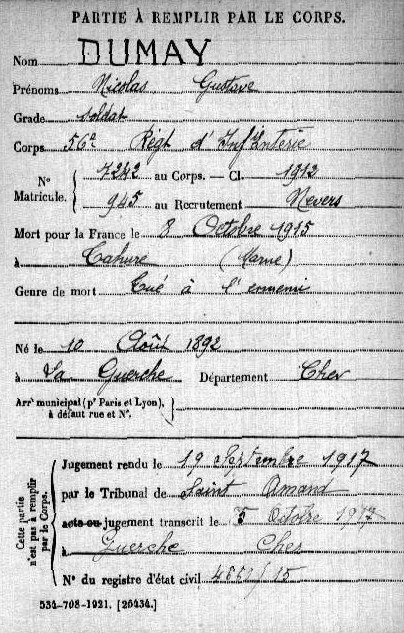 PARTIE À REMPLIR PAR LE CORPS.
Nom DUMAY
Prénoms Nicolas Gustave
Grade soldat
Corps 56e Régt d'Infanterie
N° Matricule. { 7242 au Corps. — Cl. 1912
945 au Recrutement Nevers
Mort pour la France le 8 Octobre 1915
à Tahure (Marne)
Genre de mort Tué à l'ennemi
Né le 10 Août 1892
à La Guerche Département Cher
Arrt municipal (pr Paris et Lyon),
à défaut rue et N°.
Cette partie n'est pas à remplir par le Corps.
Jugement rendu le 19 Septembre 1917
par le Tribunal de Saint Amand
acte ou jugement transcrit le 5 Octobre 1917
à Guerche Cher
N° du registre d'état civil
534-708-1921. [26434.]